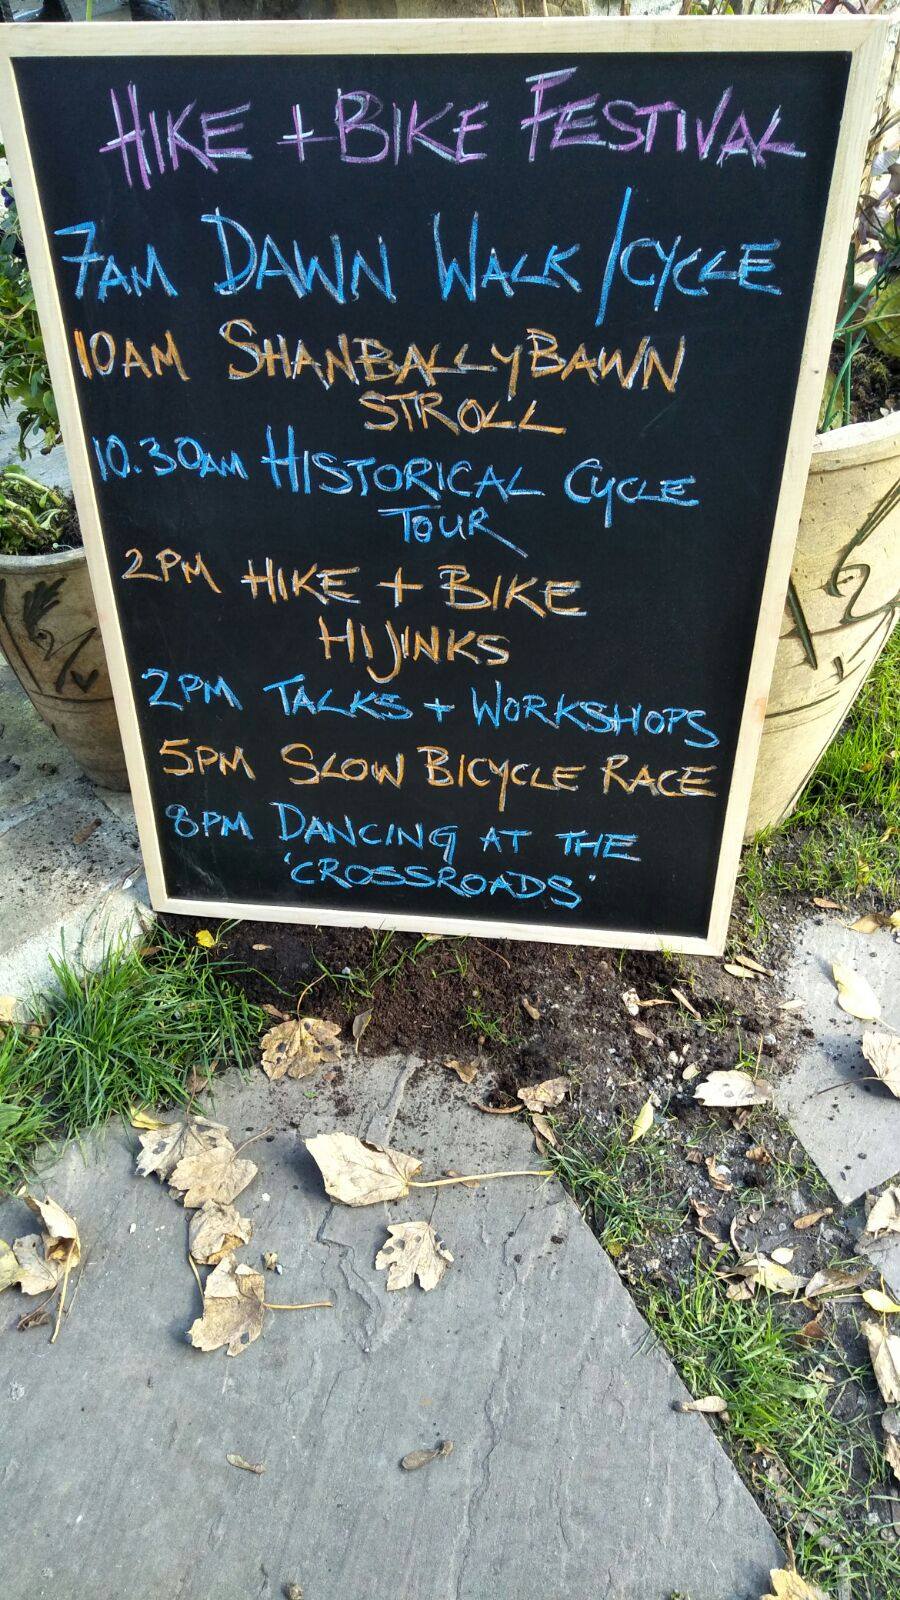 HIKE + BIKE FESTIVAL
7AM DAWN WALK / CYCLE
10AM SHANBALLYBAWN
STROLL
10.30AM HISTORICAL CYCLE
TOUR
2PM HIKE + BIKE
HIJINKS
2PM TALKS + WORKSHOPS
5PM SLOW BICYCLE RACE
8PM DANCING AT THE
'CROSSROADS'